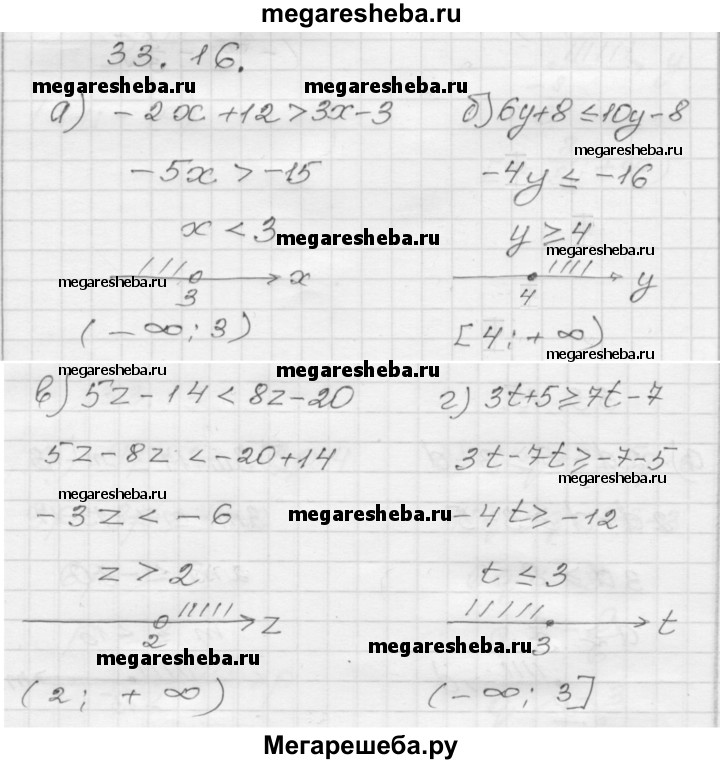 megaresheba.ru
33. 16.
megaresheba.ru megaresheba.ru
а) -2x+12>3x-3
б) 6y+8≤10y-8
megaresheba.ru
-5x>-15
-4y≤-16
x<3
megaresheba.ru
y≥4
megaresheba.ru
megaresheba.ru
3
x
4
y
(-∞; 3)
[4; +∞)
megaresheba.ru
megaresheba.ru
megaresheba.ru
в) 5z-14<8z-20
г) 3t+5≥7t-7
5z-8z<-20+14
3t-7t≥-7-5
megaresheba.ru
megaresheba.ru
-3z<-6
megaresheba.ru
-4t≥-12
z>2
t≤3
2
z
3
t
megaresheba.ru
megaresheba.ru
(2; +∞)
(-∞; 3]
Мегарешеба.ру